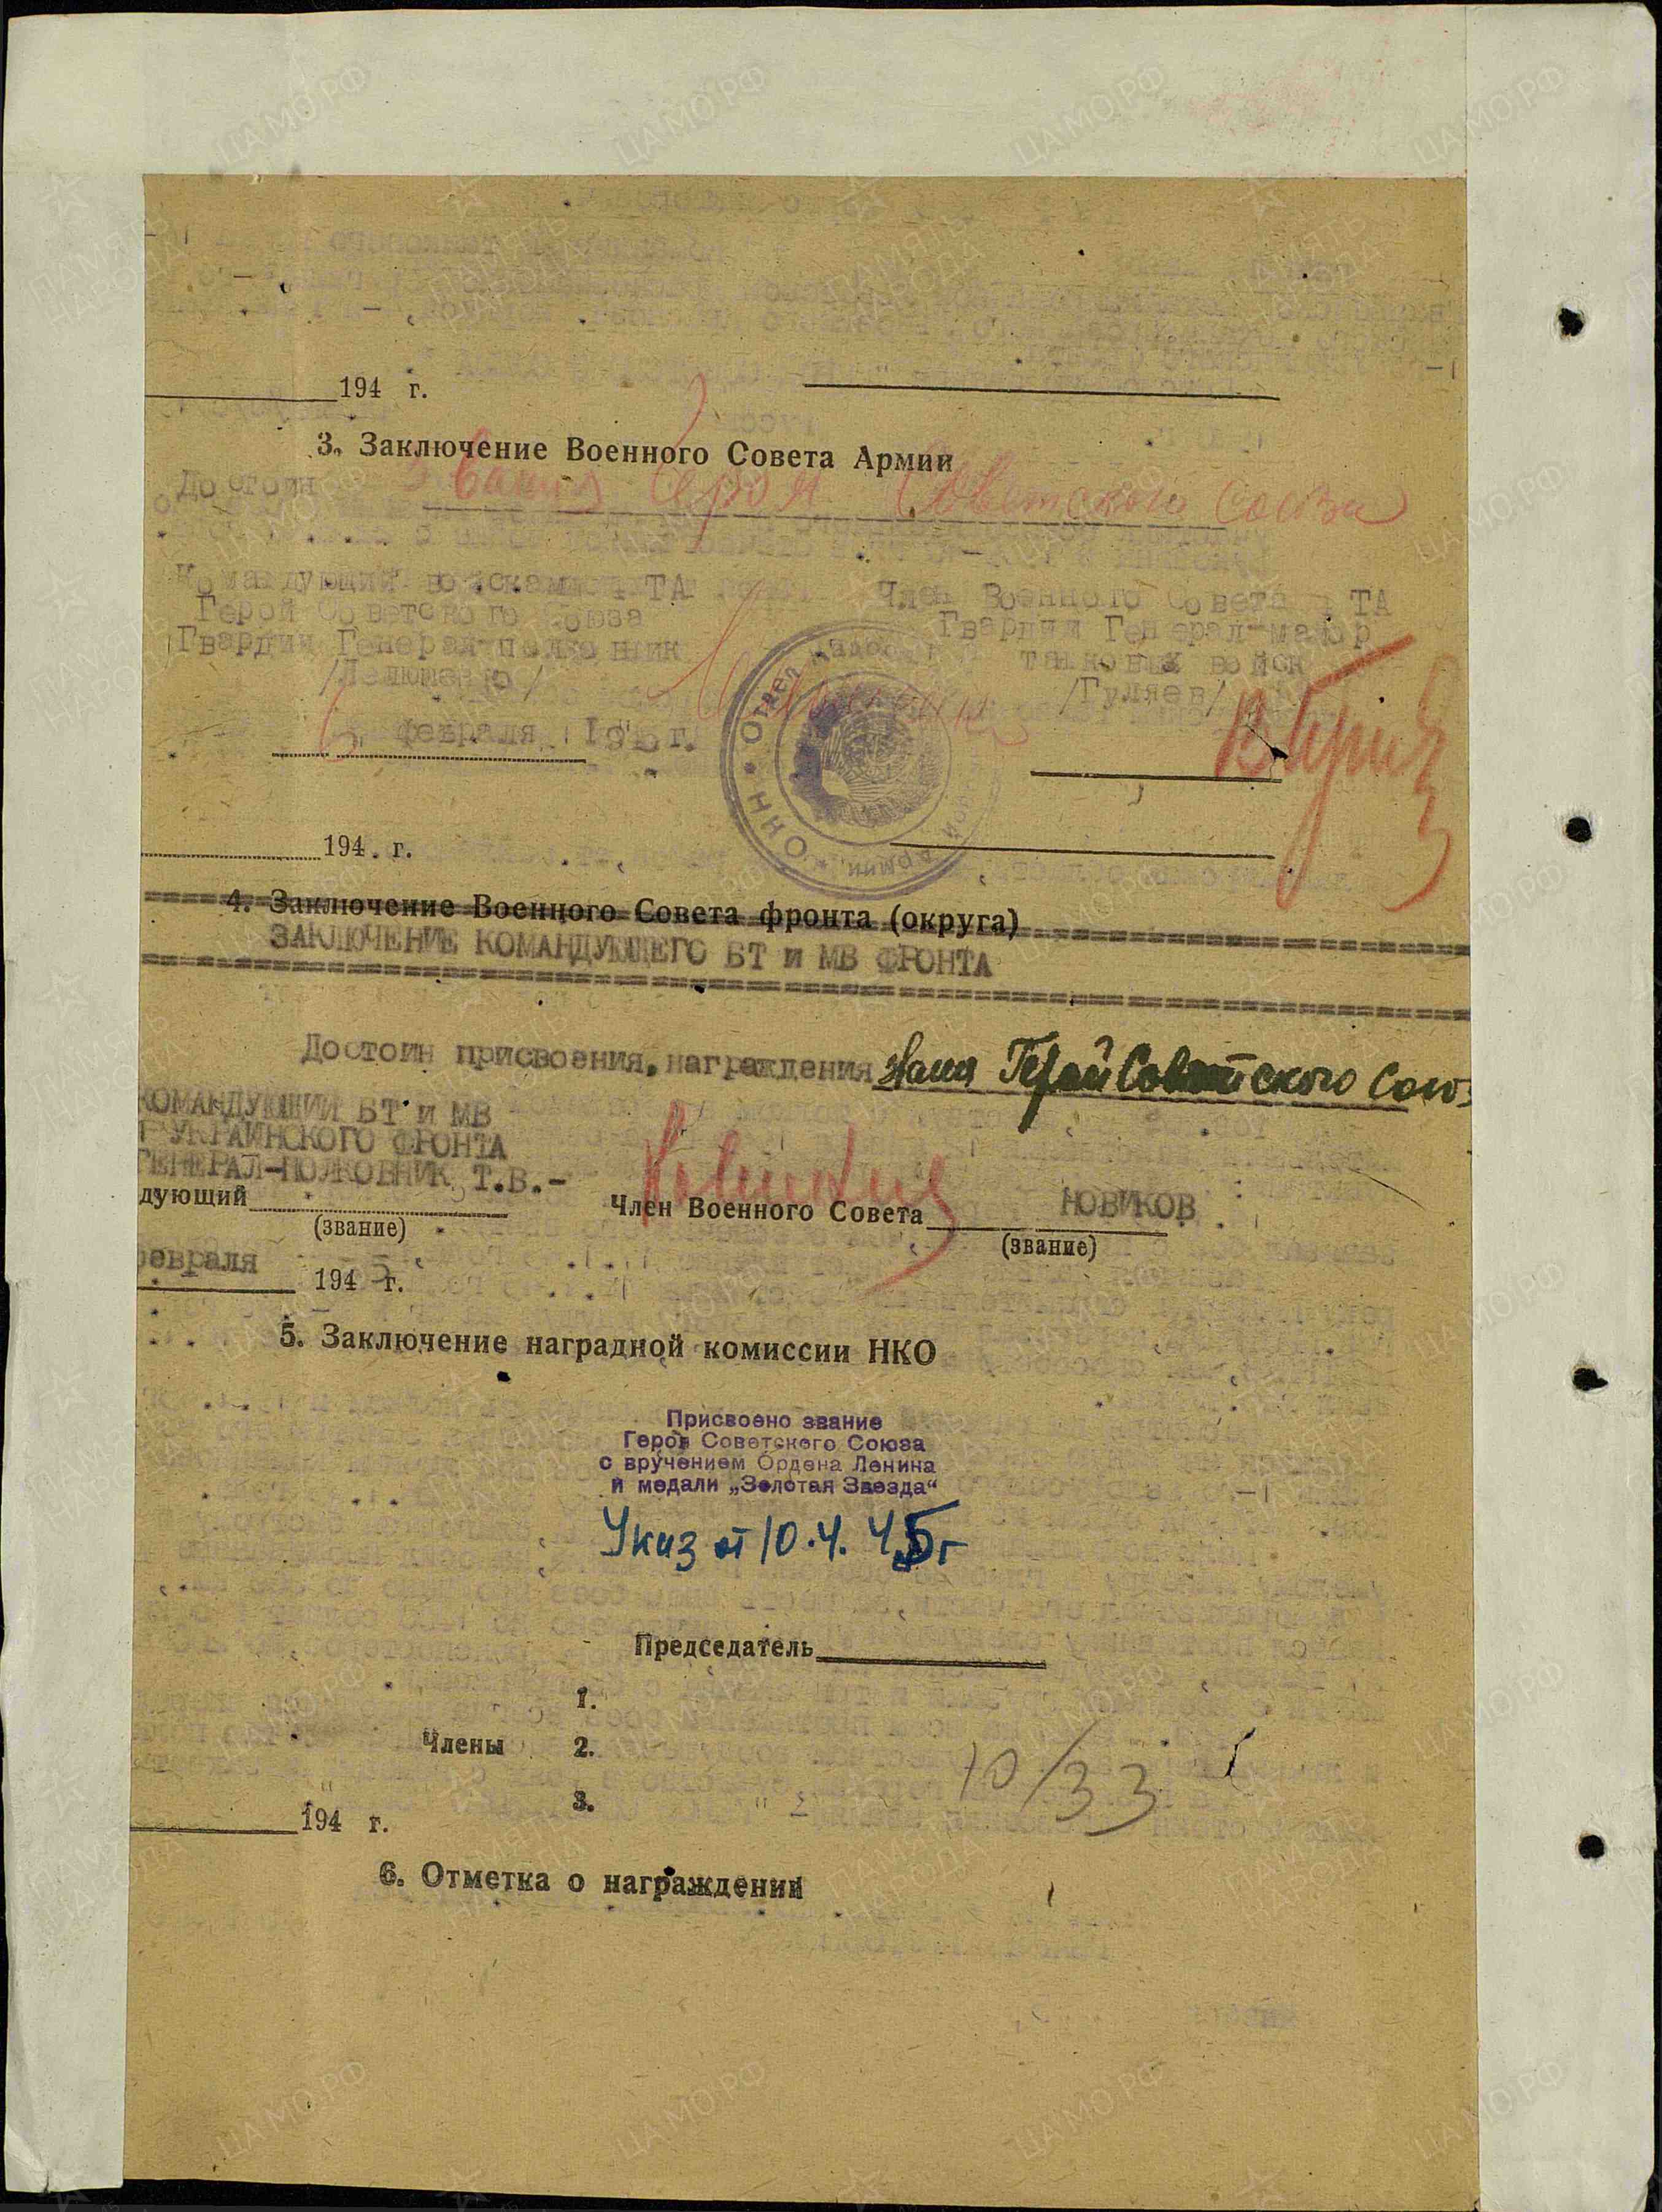 194 г.
3. Заключение Военного Совета Армии
Достоин звания Героя Советского Союза
Командующий войсками 4 ТА
Герой Советского Союза
Гвардии Генерал-полковник
/Лелюшенко/
Член Военного Совета 4 ТА
Гвардии Генерал-майор
танковых войск
/Гуляев/
февраля 1945 г.
194 г.
4. Заключение Военного Совета фронта (округа)
ЗАКЛЮЧЕНИЕ КОМАНДУЮЩЕГО БТ и МВ ФРОНТА
Достоин присвоения, награждения звания Герой Советского Союз
КОМАНДУЮЩИЙ БТ и МВ
1 УКРАИНСКОГО ФРОНТА
ГЕНЕРАЛ-ПОЛКОВНИК Т.В.-
дующий
(звание)
Член Военного Совета НОВИКОВ
(звание)
февраля 1945 г.
5. Заключение наградной комиссии НКО
Присвоено звание
Героя Советского Союза
с вручением Ордена Ленина
и медали „Золотая Звезда“
Указ от 10.4.45г
Председатель
1.
Члены 2.
3.
10/33
194 г.
6. Отметка о награждении